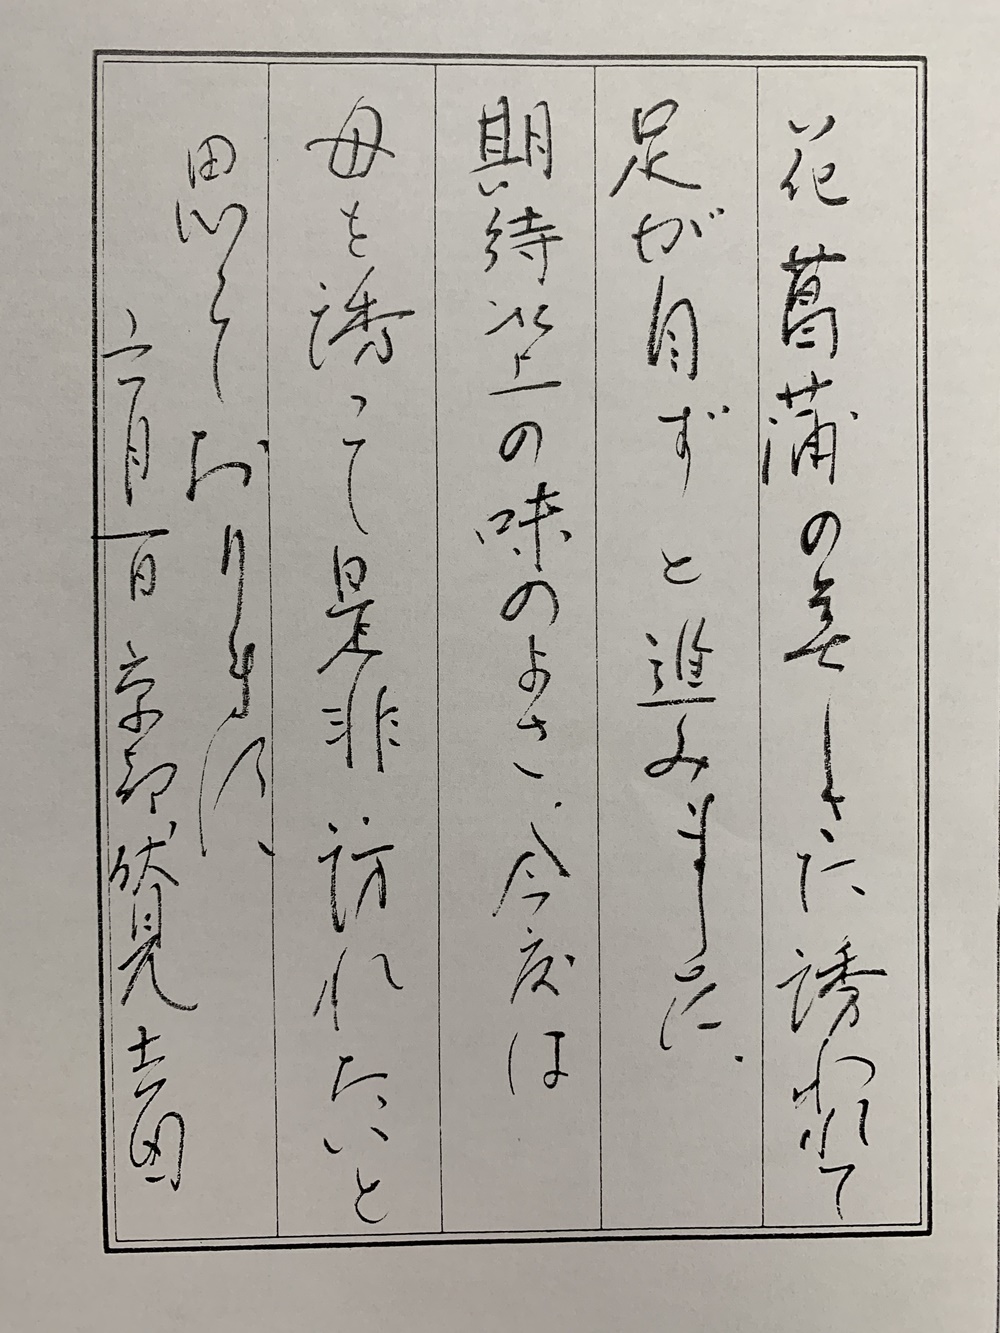 花菖蒲の美しさに誘われて
足が自ずと進みました。
期待以上の味のよさ、今度は
母を誘って是非訪れたいと
思っております。
六月一日 京都伏見 吉田